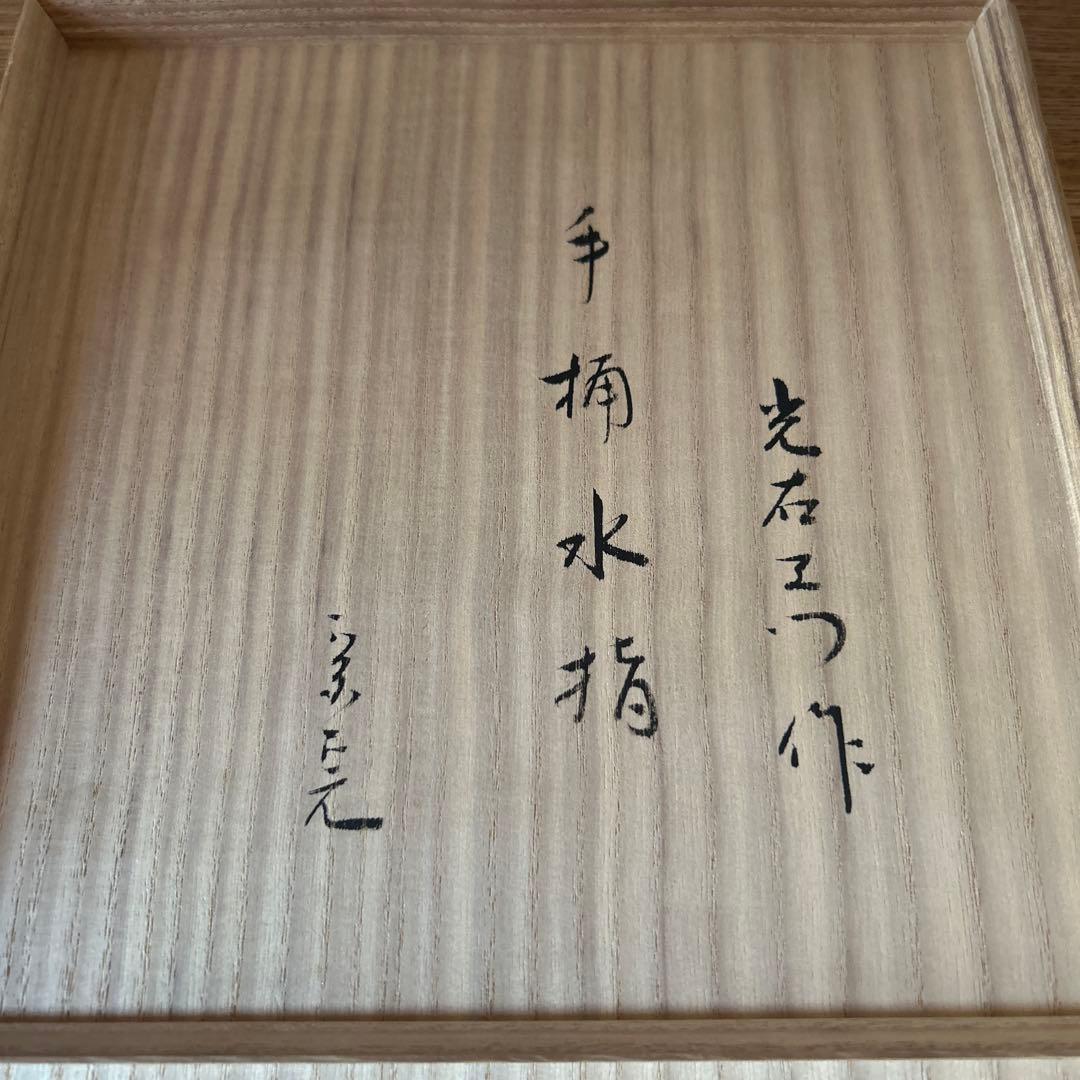 光右エ门作
手桶水指
宗完